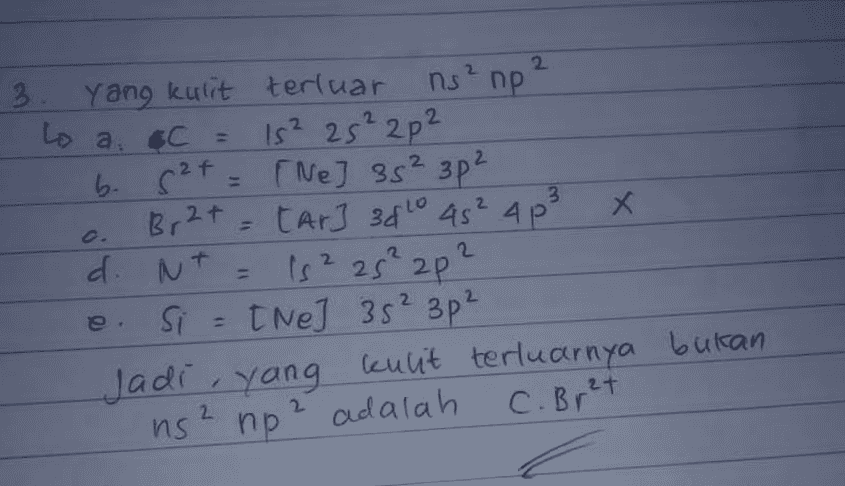 3. yang kulit terluar ns² np²
↳ a. ₆C = 1s² 2s² 2p²
b. S²⁺ = [Ne] 3s² 3p²
c. Br²⁺ = [Ar] 3d¹⁰ 4s² 4p³ X
d. N⁺ = 1s² 2s² 2p²
e. Si = [Ne] 3s² 3p²
Jadi, yang kulit terluarnya bukan
ns² np² adalah C. Br²⁺